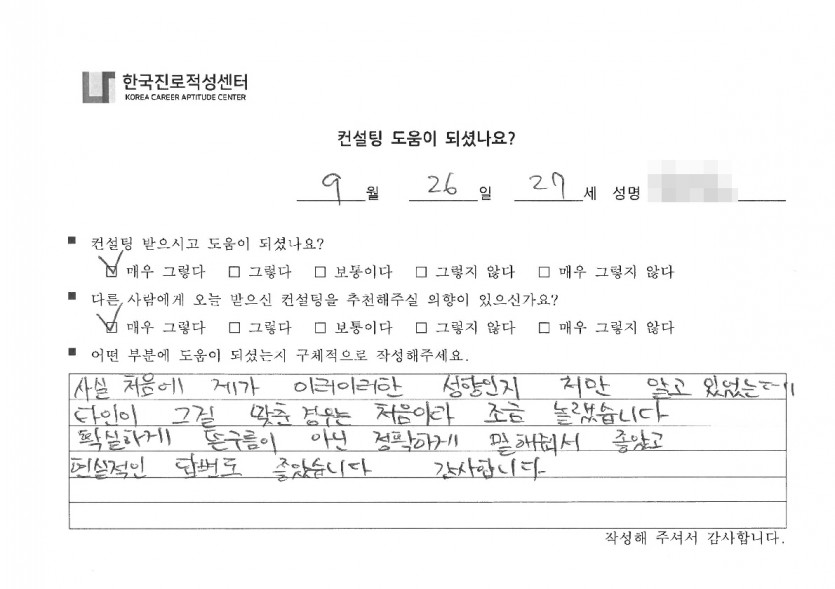 한국진로적성센터
KOREA CAREER APTITUDE CENTER
컨설팅 도움이 되셨나요?
9 월 26 일 27 세 성명
■ 컨설팅 받으시고 도움이 되셨나요?
☑ 매우 그렇다 □ 그렇다 □ 보통이다 □ 그렇지 않다 □ 매우 그렇지 않다
■ 다른 사람에게 오늘 받으신 컨설팅을 추천해주실 의향이 있으신가요?
☑ 매우 그렇다 □ 그렇다 □ 보통이다 □ 그렇지 않다 □ 매우 그렇지 않다
■ 어떤 부분에 도움이 되셨는지 구체적으로 작성해주세요.
사실 처음에 제가 이러이러한 성향인지 저만 알고 있었는데
타인이 그걸 맞춘 경우는 처음이라 조금 놀랐습니다
확실하게 뜬구름이 아닌 정확하게 말해줘서 좋았고
현실적인 답변도 좋았습니다 감사합니다
작성해 주셔서 감사합니다.